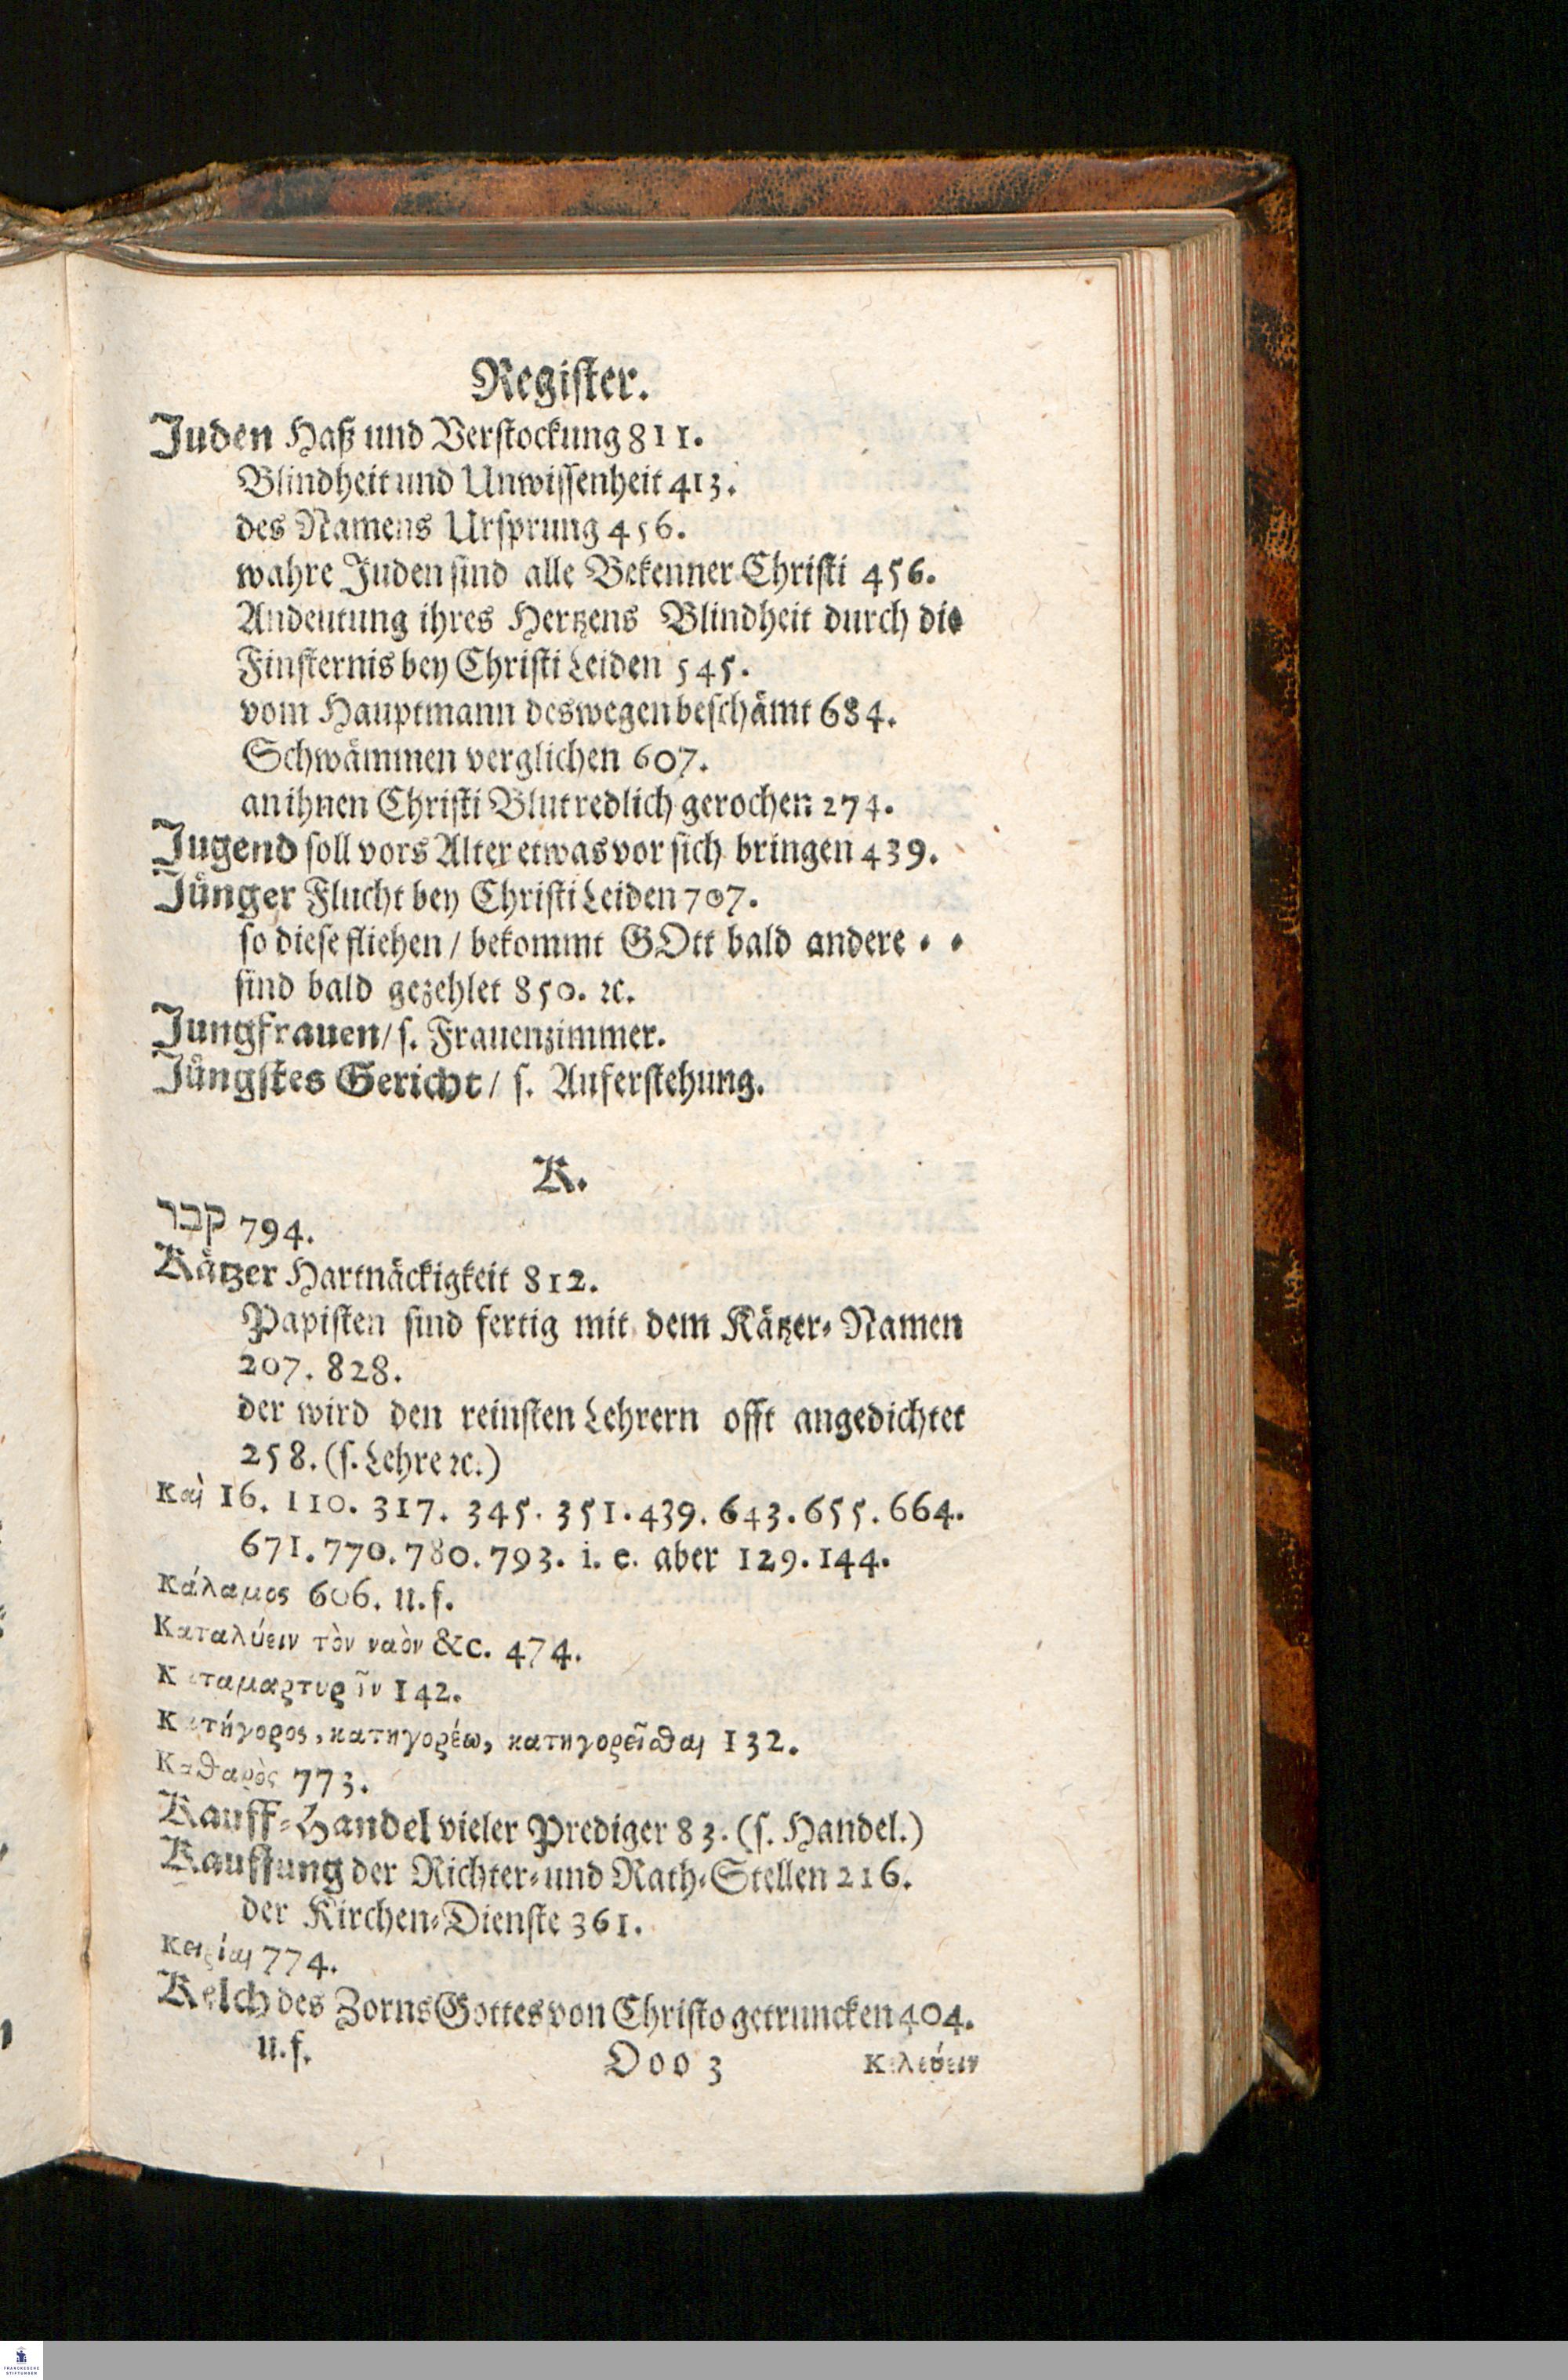 Register.
Juden Haß und Verstockung 811.
Blindheit und Unwissenheit 413.
des Namens Ursprung 456.
wahre Juden sind alle Bekenner Christi 456.
Andeutung ihres Hertzens Blindheit durch die
Finsternis bey Christi Leiden 545.
vom Hauptmann deswegen beschämt 684.
Schwämmen verglichen 607.
an ihnen Christi Blut redlich gerochen 274.
Jugend soll vors Alter etwas vor sich bringen 439.
Jünger Flucht bey Christi Leiden 707.
so diese fliehen / bekommt GOtt bald andere ⸗ ⸗
sind bald gezehlet 850. ꝛc.
Jungfrauen / s. Frauenzimmer.
Jüngstes Gericht / s. Auferstehung.
K.
קבר 794.
Kätzer Hartnäckigkeit 812.
Papisten sind fertig mit dem Kätzer⸗Namen
207. 828.
der wird den reinsten Lehrern offt angedichtet
258. (s. Lehre ꝛc.)
Καὶ 16. 110. 317. 345. 351. 439. 643. 655. 664.
671. 770. 780. 793. i. e. aber 129. 144.
Κάλαμος 606. u. f.
Καταλύειν τὸν ναὸν &c. 474.
Καταμαρτυρεῖν 142.
Κατήγορος, κατηγορέω, κατηγορεῖσθαι 132.
Καθαρὸς 773.
Kauff⸗Handel vieler Prediger 83. (s. Handel.)
Kauffung der Richter⸗ und Rath⸗Stellen 216.
der Kirchen⸗Dienste 361.
Κειρίαι 774.
Kelch des Zorns Gottes von Christo getruncken 404.
u. f.
Ooo 3
Κελεύειν
FRANCKESCHE
STIFTUNGEN